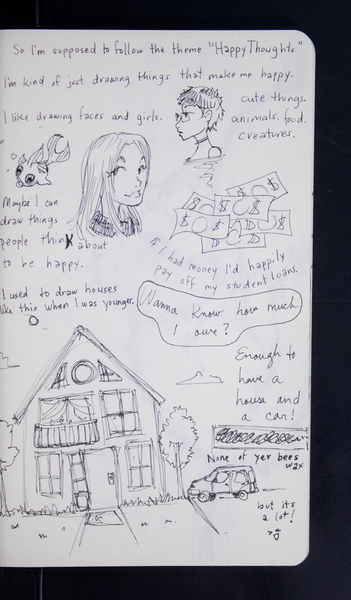 So I'm supposed to follow the theme "Happy Thoughts"
I'm kind of just drawing things that make me happy.
cute things.
I like drawing faces and girls.
animals. food.
creatures.
Maybe I can
draw things
people think about
to be happy.
$ $ $ $
If I had money I'd happily
pay off my student loans.
I used to draw houses
like this when I was younger.
Wanna know how much
I owe?
Enough to
have a
house and
a car!
None of yer bees
wax
but its
a lot!